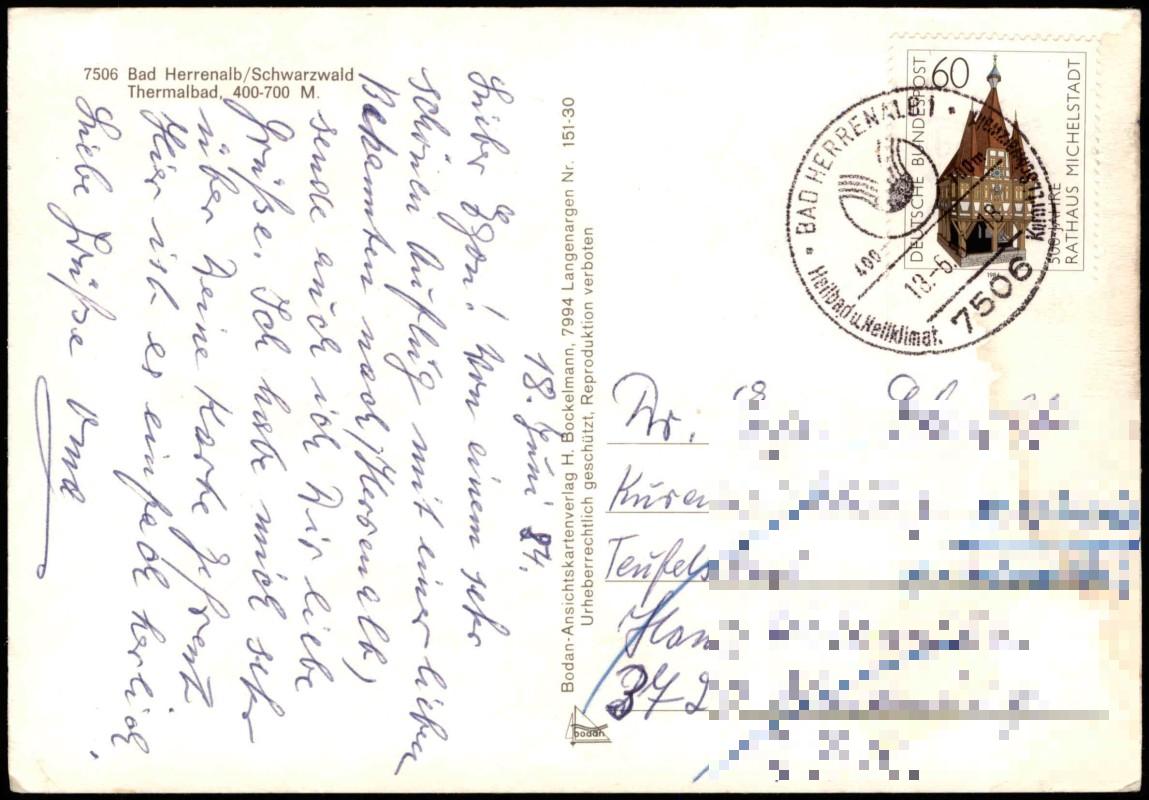 7506 Bad Herrenalb/Schwarzwald
Thermalbad, 400-700 M.
18. Juni 84.
Lieber Egon! Von einem sehr
schönen Ausflug mit einer lieben
Bekannten nach Herrenalb,
sende auch ich Dir liebe
Grüße. Ich habe mich sehr
über Deine Karte gefreut
Hier ist es einfach herrlich.
Liebe Grüße
Bodan-Ansichtskartenverlag H. Bockelmann, 7994 Langenargen Nr. 151-30
Urheberrechtlich geschützt, Reproduktion verboten
bodan
60
DEUTSCHE BUNDESPOST
500 JAHRE
RATHAUS MICHELSTADT
1984
BAD HERRENALB 1
400-700m
18.-6.
7506
Heilbad u. Heilklimat. Kurort
Dr.
Teufels
372